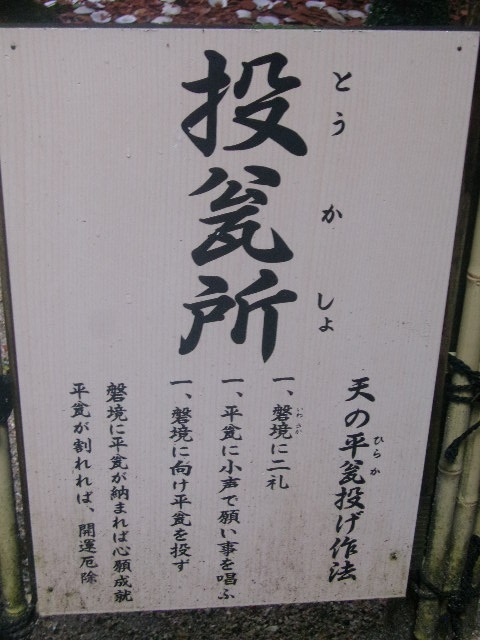 投瓮所
とうかしょ
天の平瓮投げ作法
ひらか
一、磐境に二礼
いわさか
一、平瓮に小声で願い事を唱ふ
一、磐境に向け平瓮を投ず
磐境に平瓮が納まれば心願成就
平瓮が割れれば、開運厄除